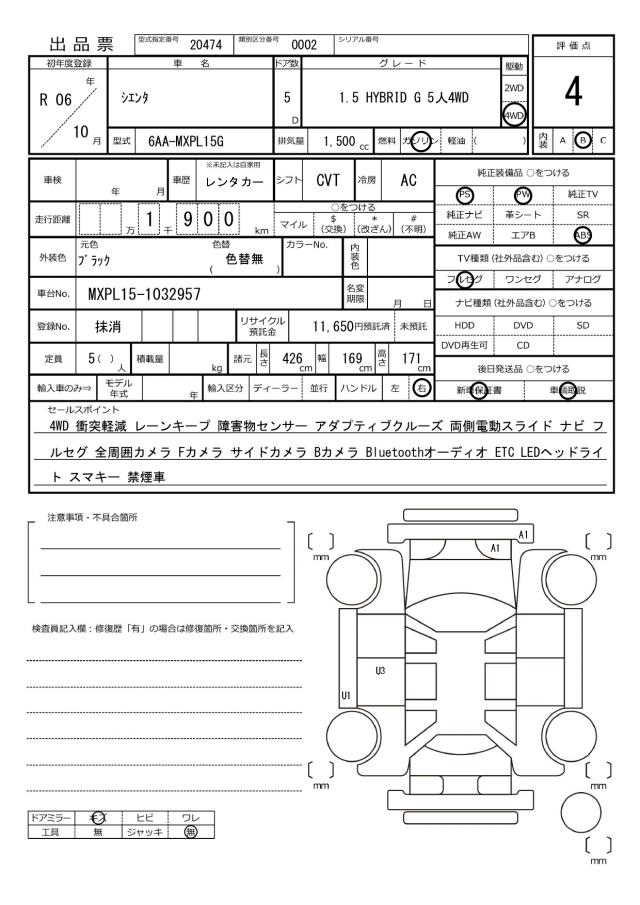 出品票 型式指定番号 20474 類別区分番号 0002 シリアル番号
評価点
初年度登録 車名 ドア数 グレード 駆動
R 06 年 シエンタ 5 D 1.5 HYBRID G 5人4WD 2WD 4
10 月 4WD
型式 6AA-MXPL15G 排気量 1,500 cc 燃料 ガソリン 軽油 ( ) 内装 A B C
車検 年 月 車歴 ※未記入は自家用 レンタカー シフト CVT 冷房 AC
純正装備品 ○をつける
PS PW 純正TV
走行距離 万 1 千 9 0 0 km ○をつける
マイル $ (交換) * (改ざん) # (不明)
純正ナビ 革シート SR
純正AW エアB ABS
外装色 元色 ブラック 色替 ( 色替無 ) カラーNo. 内装色
TV種類 (社外品含む) ○をつける
フルセグ ワンセグ アナログ
車台No. MXPL15-1032957 名変期限 月 日
ナビ種類 (社外品含む) ○をつける
登録No. 抹消 リサイクル預託金 11,650円預託済 未預託
HDD DVD SD
DVD再生可 CD
定員 5 ( ) 人 積載量 kg 諸元 長さ 426 cm 幅 169 cm 高さ 171 cm
後日発送品 ○をつける
輸入車のみ⇒ モデル年式 年 輸入区分 ディーラー 並行 ハンドル 左 右
新車保証書 車輌取説
セールスポイント
4WD 衝突軽減 レーンキープ 障害物センサー アダプティブクルーズ 両側電動スライド ナビ フ
ルセグ 全周囲カメラ Fカメラ サイドカメラ Bカメラ Bluetoothオーディオ ETC LEDヘッドライ
ト スマキー 禁煙車
注意事項・不具合箇所
検査員記入欄：修復歴「有」の場合は修復箇所・交換箇所を記入
A1
A1
[ ] mm
[ ] mm
U3
U1
[ ] mm
[ ] mm
[ ] mm
ドアミラー キズ ヒビ ワレ
工具 無 ジャッキ 無